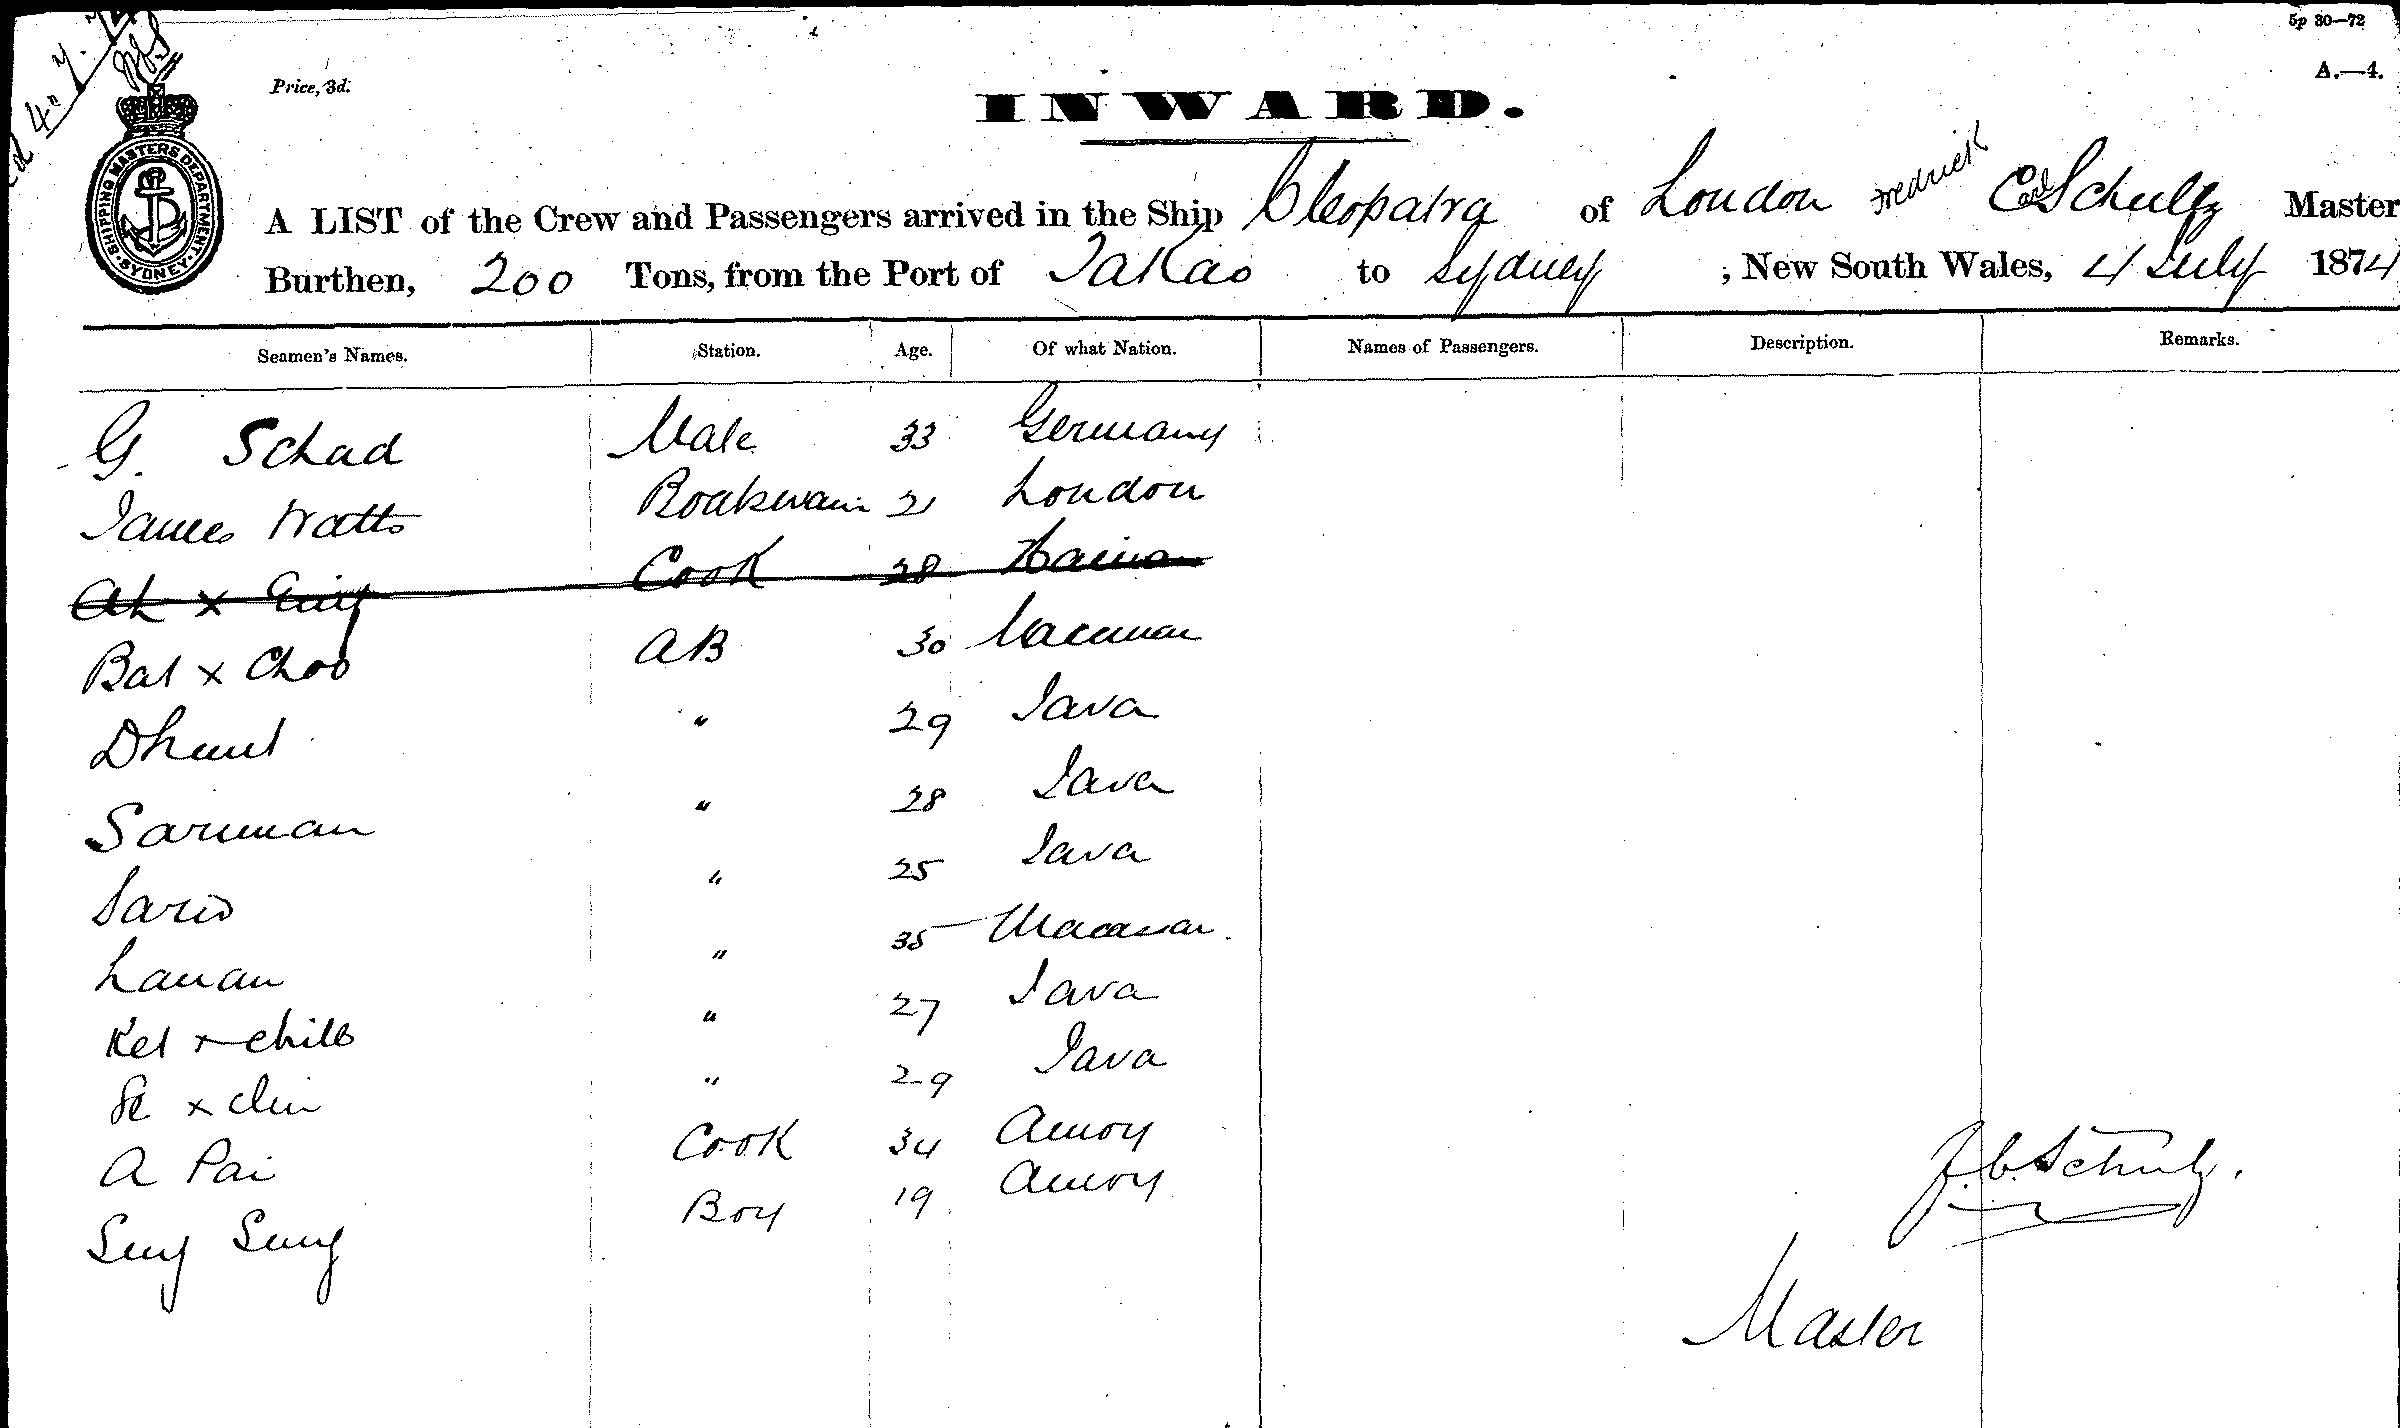 5p 30—72
A.—4.
Price, 3d.
INWARD.
SHIPPING MASTERS DEPARTMENT SYDNEY
A LIST of the Crew and Passengers arrived in the Ship Cleopatra of London Fredrick Carl Schultz Master
Burthen, 200 Tons, from the Port of Takao to Sydney ; New South Wales, 4 July 1874
Seamen's Names. Station. Age. Of what Nation. Names of Passengers. Description. Remarks.
G. Schad Mate 33 Germany
James Watts Boatswain 21 London
Ah x Cook 28 Hainan
Bat x Choo AB 30 
Dhaml " 29 Java
Saruman " 28 Java
Sario " 25 Java
Lanan " 35 Macassar
Ket x chill " 27 Java
x " 29 Java
A Pai Cook 34 Amoy
Sung Sung Boy 19 Amoy
J. C. Schultz.
Master